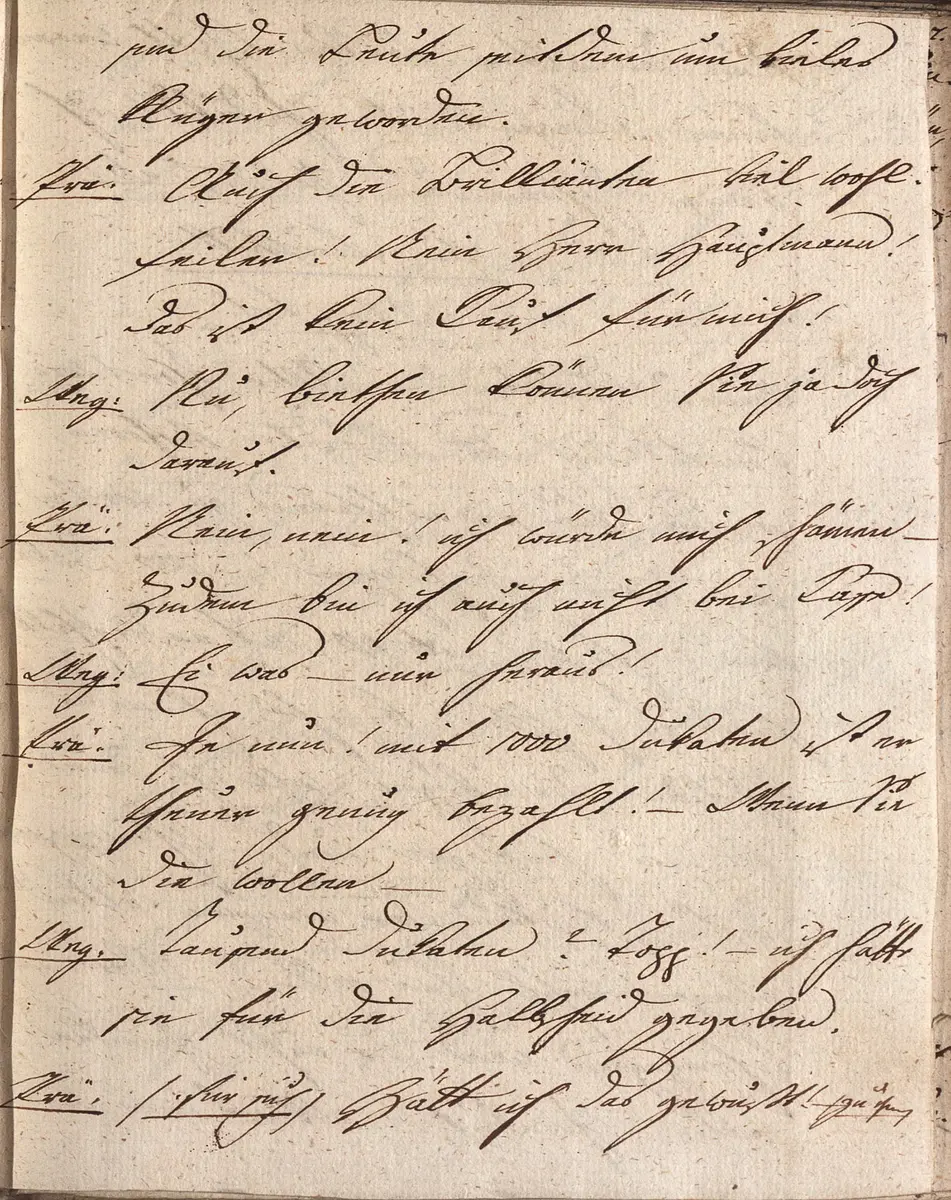 sind die Leute seitdem um vieles
klüger geworden.
Prä: Auch die Brillianten viel wohl-
feiler! Nein Herr Hauptmann!
das ist kein Kauf für mich!
Weg: Nu, biethen können Sie ja doch
darauf.
Prä: Nein, nein! ich würde mich schämen —
Zudem bin ich auch nicht bei Cassa!
Weg: Ei was — nur heraus!
Prä: Je nun! mit 1000 Dukaten ist er
theuer genug bezahlt! — Wenn Sie
die wollen —
Weg. Tausend Dukaten? Topp! — ich hätte
sie für die Halbscheid gegeben.
Prä. (für sich) Hätt ich das gewußt! (zu ihm)